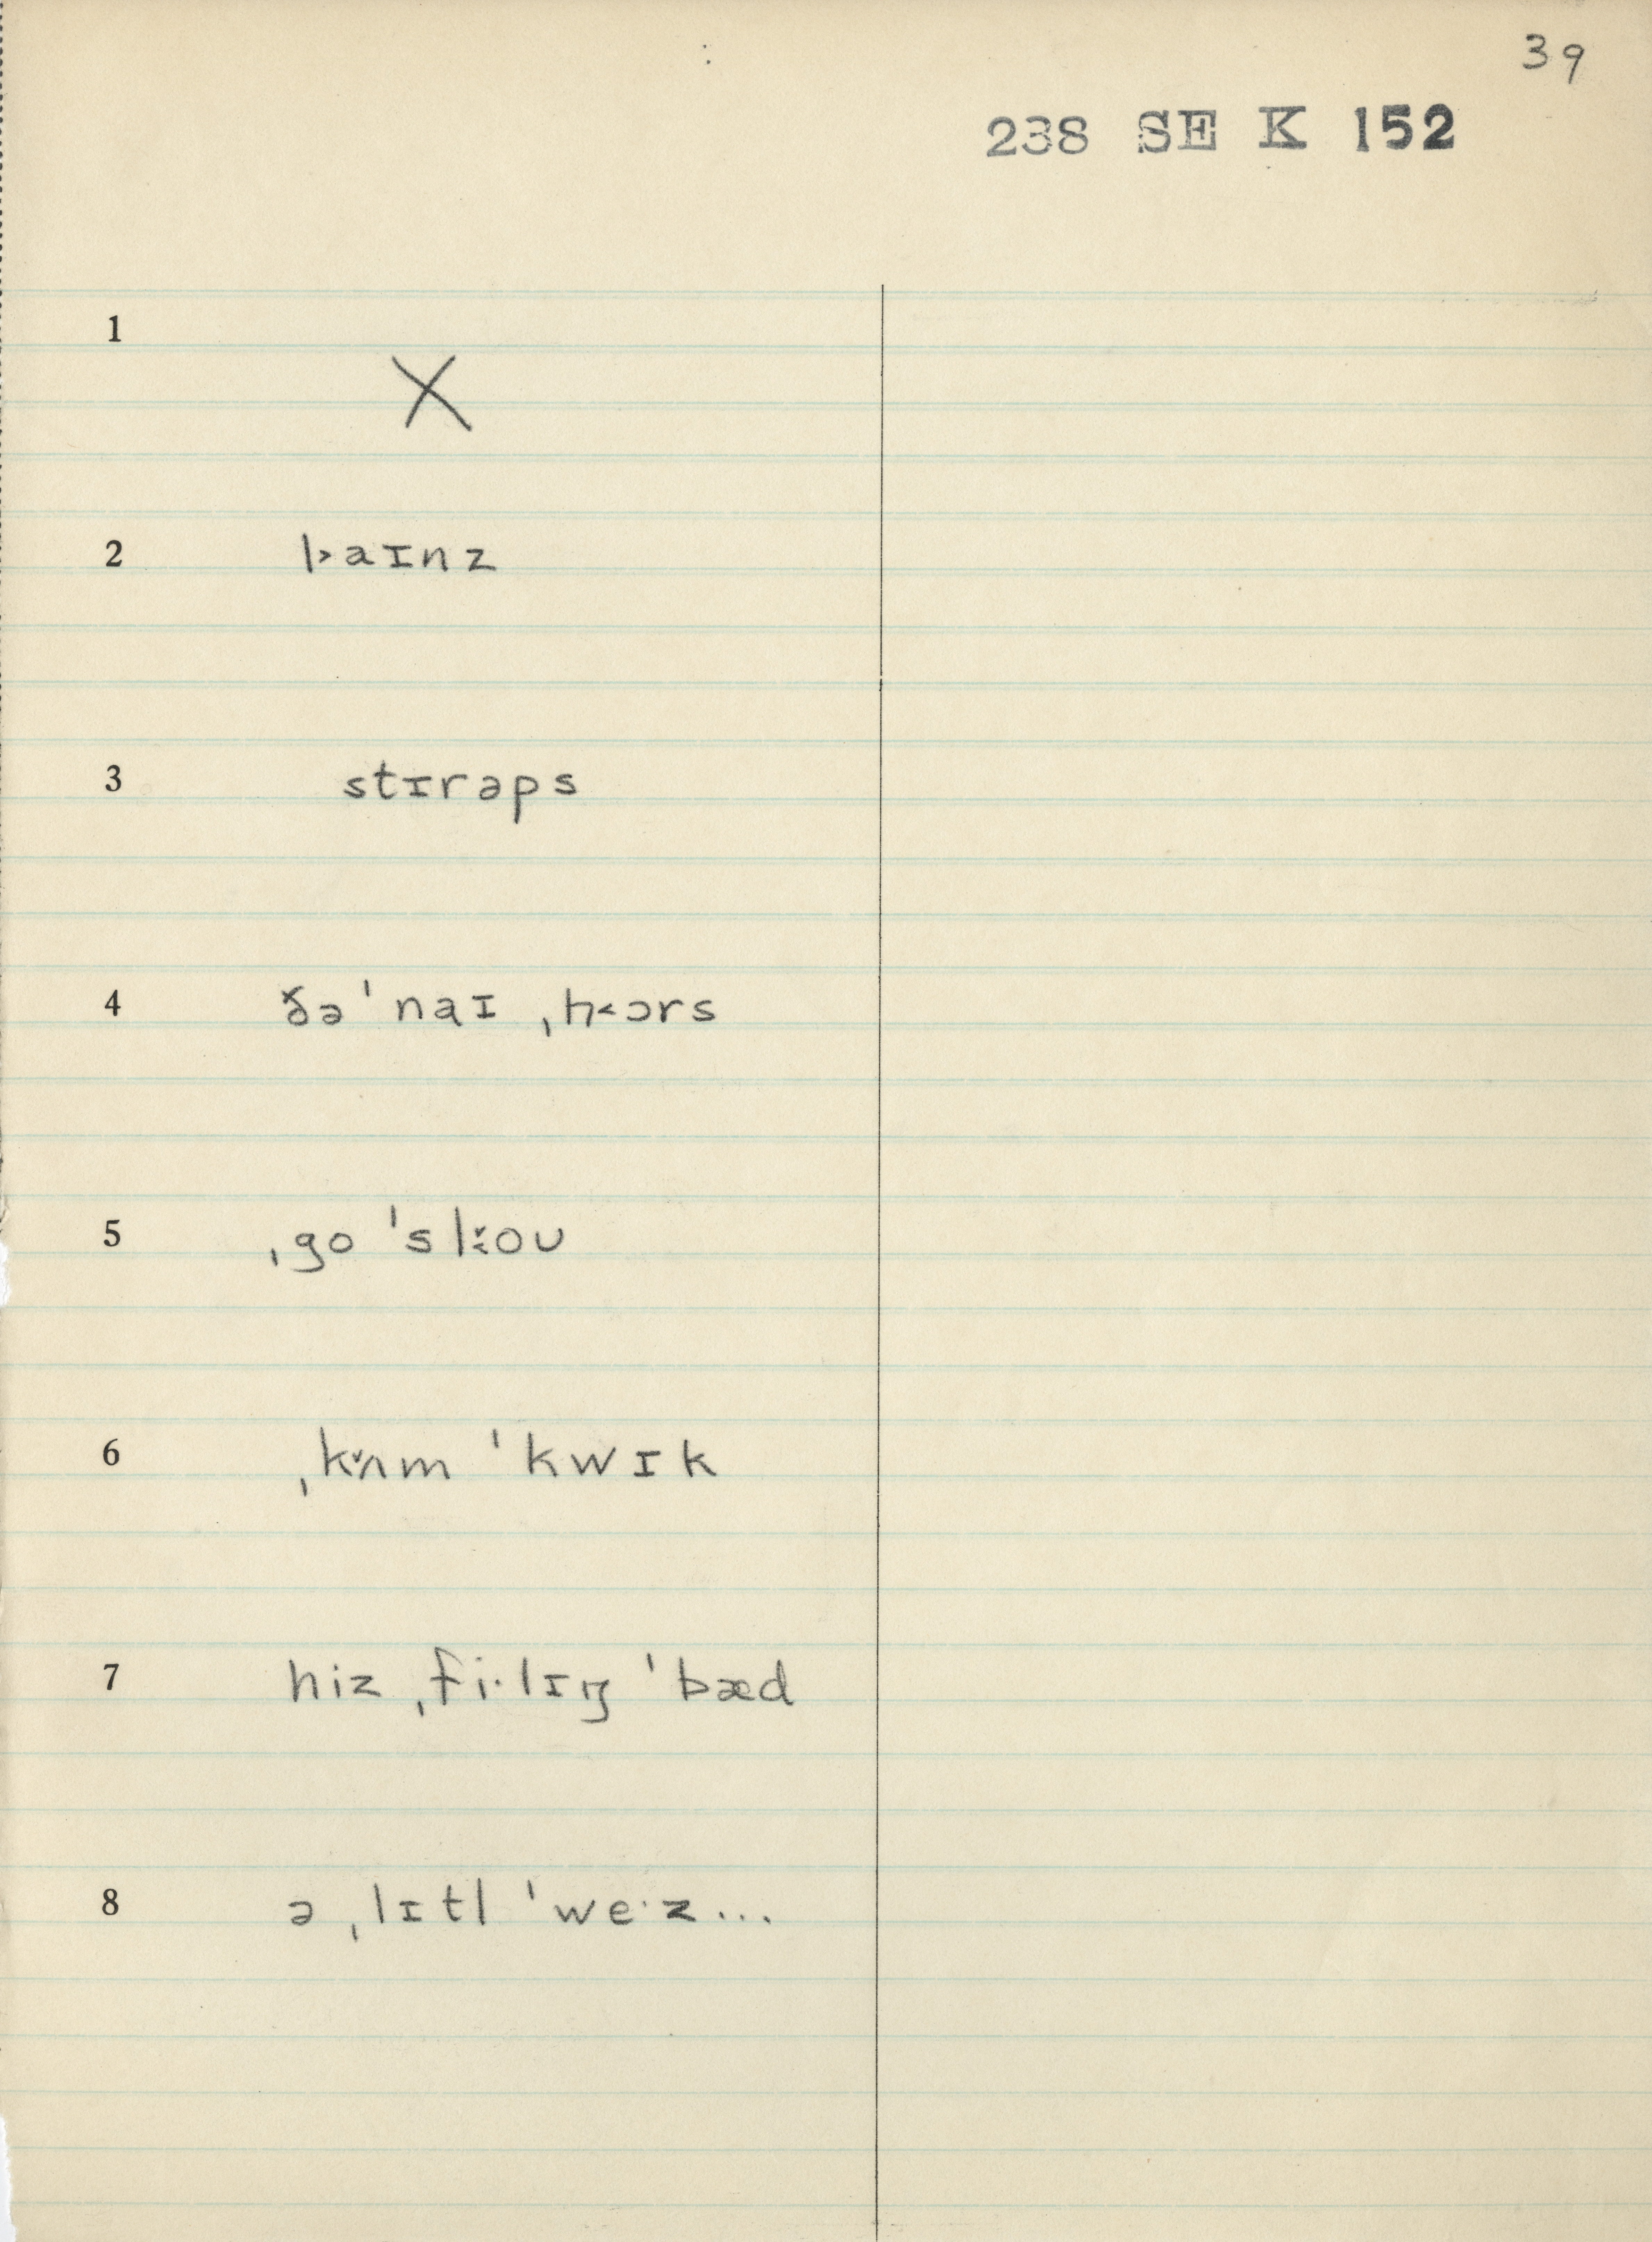 39
238 SE K 152
1 X
2 l˃aɪnz
3 stɪrəps
4 ðə ˈnaɪ ˌh˂ɔrs
5 ˌgo ˈsl̬˂oʊ
6 ˌkʌ̌m ˈkwɪk
7 hiz ˌfi·lɪŋ ˈbæd
8 ə ˌlɪtl ˈwe·z...